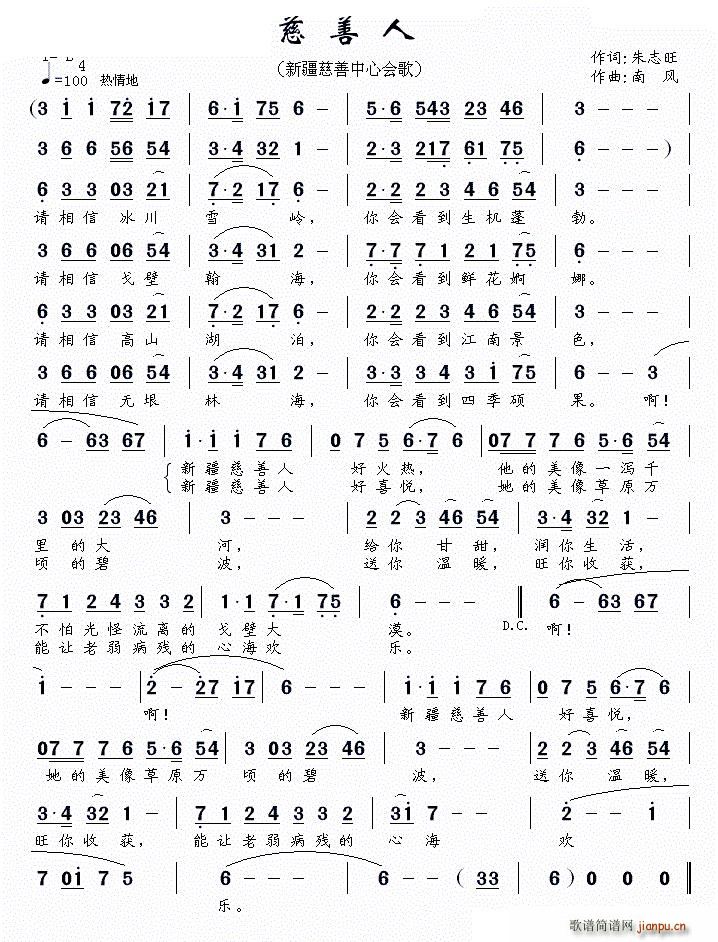 慈善人
（新疆慈善中心会歌）
作词：朱志旺
作曲：南 风
4
♩=100 热情地
(3 i i 72 i7 | 6·i 765 6 - | 5·6 543 23 56 | 3 - - -
3 6 6 56 54 | 3·4 32 1 - | 2·3 217 61 75 | 6 - - - )
6 3 3 03 21 | 7·2 17 6 - | 2·2 2 3 4 6 54 | 3 - - -
请相信 冰川 雪 岭， 你会看到生机蓬 勃。
3 6 6 06 54 | 3·4 31 2 - | 7·7 7 1 2 1 75 | 6 - - -
请相信 戈壁 翰 海， 你会看到鲜花婀 娜。
6 3 3 03 21 | 7·2 17 6 - | 2·2 2 3 4 6 54 | 3 - - -
请相信 高山 湖 泊， 你会看到江南景 色，
3 6 6 06 54 | 3·4 31 2 - | 3·3 3 4 3 i 75 | 6 - - 3
请相信 无垠 林 海， 你会看到四季硕 果。 啊！
6 - 63 67 | i·i i 7 6 | 0 7 5 6·7 6 | 07 7 7 6 5·6 54
新疆慈善人 好火热， 他的美像一泻千
新疆慈善人 好喜悦， 她的美像草原万
3 03 23 46 | 3 - - - | 2 2 3 46 54 | 3·4 32 1 -
里 的大 河， 给你 甘甜， 润你生活，
顷 的碧 波， 送你 温暖， 旺你收获，
7 1 2 4 3 3 3 2 | 1·1 7·1 75 | 6 - - - ‖ 6 - 63 67
不怕光怪流离的 戈壁大 漠。 D.C. 啊！
能让老弱病残的 心海欢 乐。
i - - - | 2 - 27 i7 | 6 - - - | i·i i 7 6 | 0 7 5 6·7 6
啊！ 新疆慈善人 好喜悦，
07 7 7 6 5·6 54 | 3 03 23 46 | 3 - - - | 2 2 3 46 54
她的美像草原万 顷 的碧 波， 送你 温暖，
3·4 32 1 - | 7 1 2 4 3 3 3 2 | 3i 7 - - | 2 - - i
旺你收获， 能让老弱病残的 心 海 欢
7 0i 7 5 | 6 - - - | 6 - - (33 | 6) 0 0 0 ‖
乐。
歌谱简谱网
jianpu.cn